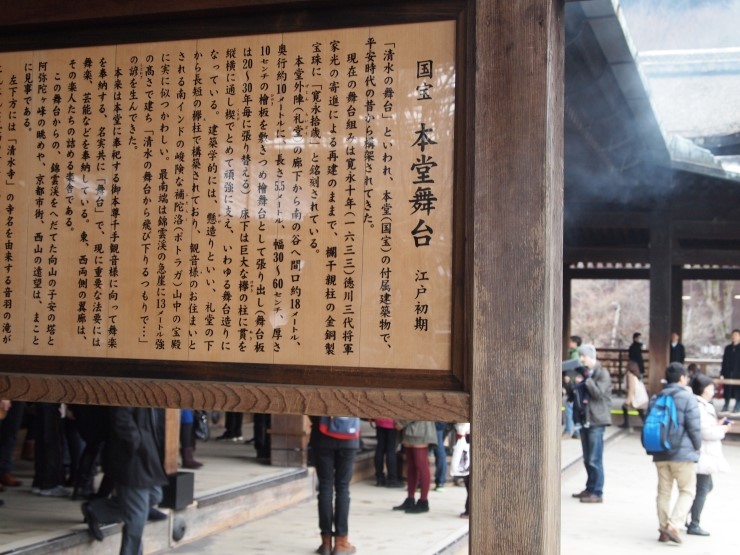 国宝 本堂舞台 江戸初期
「清水の舞台」といわれ、本堂(国宝)の付属建築物で、
平安時代の昔から構架されてきた。
現在の舞台組みは寛永十年(一六三三)徳川三代将軍
家光の寄進による再建のままで、欄干親柱の金銅製
宝珠に「寛永拾歳」と銘刻されている。
本堂外陣(礼堂)の廊下から南の谷へ間口約18メートル、
奥行約10メートルに、長さ5.5メートル、幅30~60センチ、厚さ
10センチの檜板を敷きつめ檜舞台として張り出し(舞台板
は20~30年毎に張り替える)、床下は巨大な欅の柱に貫を
縦横に通し楔でとめて頑強に支え、いわゆる舞台造りに
なっている。建築学的には、懸造りといい、礼堂の下
から長短の欅柱で構築されており、観音様のお住まいと
される南インドの峻険な補陀洛(ポトラガ)山中の宝殿
に実に似つかわしい。最南端は錦雲渓の急崖に13メートル強
の高さで建ち「清水の舞台から飛び下りるつもりで…」
の諺を生んできた。
本来は本堂に奉祀する御本尊千手観音様に向って舞楽
を奉納する、名実共に「舞台」で、現に重要な法要には
舞楽、芸能などを奉納している。東、西両側の翼廊は、
その楽人たちの詰める楽舎である。
この舞台からの、錦雲渓をへだてた向山の子安の塔と
阿弥陀ヶ峰の眺めや、京都市街、西山の遠望は、まこと
に見事である。
左下方には「清水寺」の寺名を由来する音羽の滝が